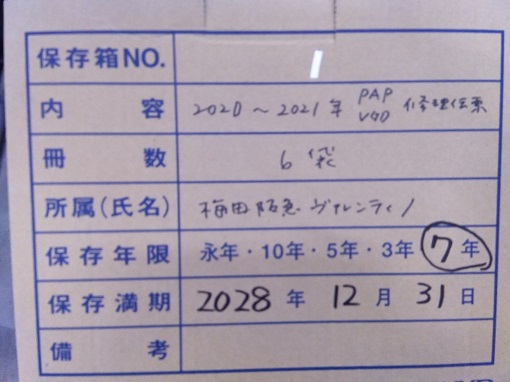 保存箱NO. 1
内容 2020～2021年 PAP VGD 修理伝票
冊数 6袋
所属(氏名) 梅田阪急 ヴァレンティノ
保存年限 永年・10年・5年・3年 7年
保存満期 2028年 12月 31日
備考